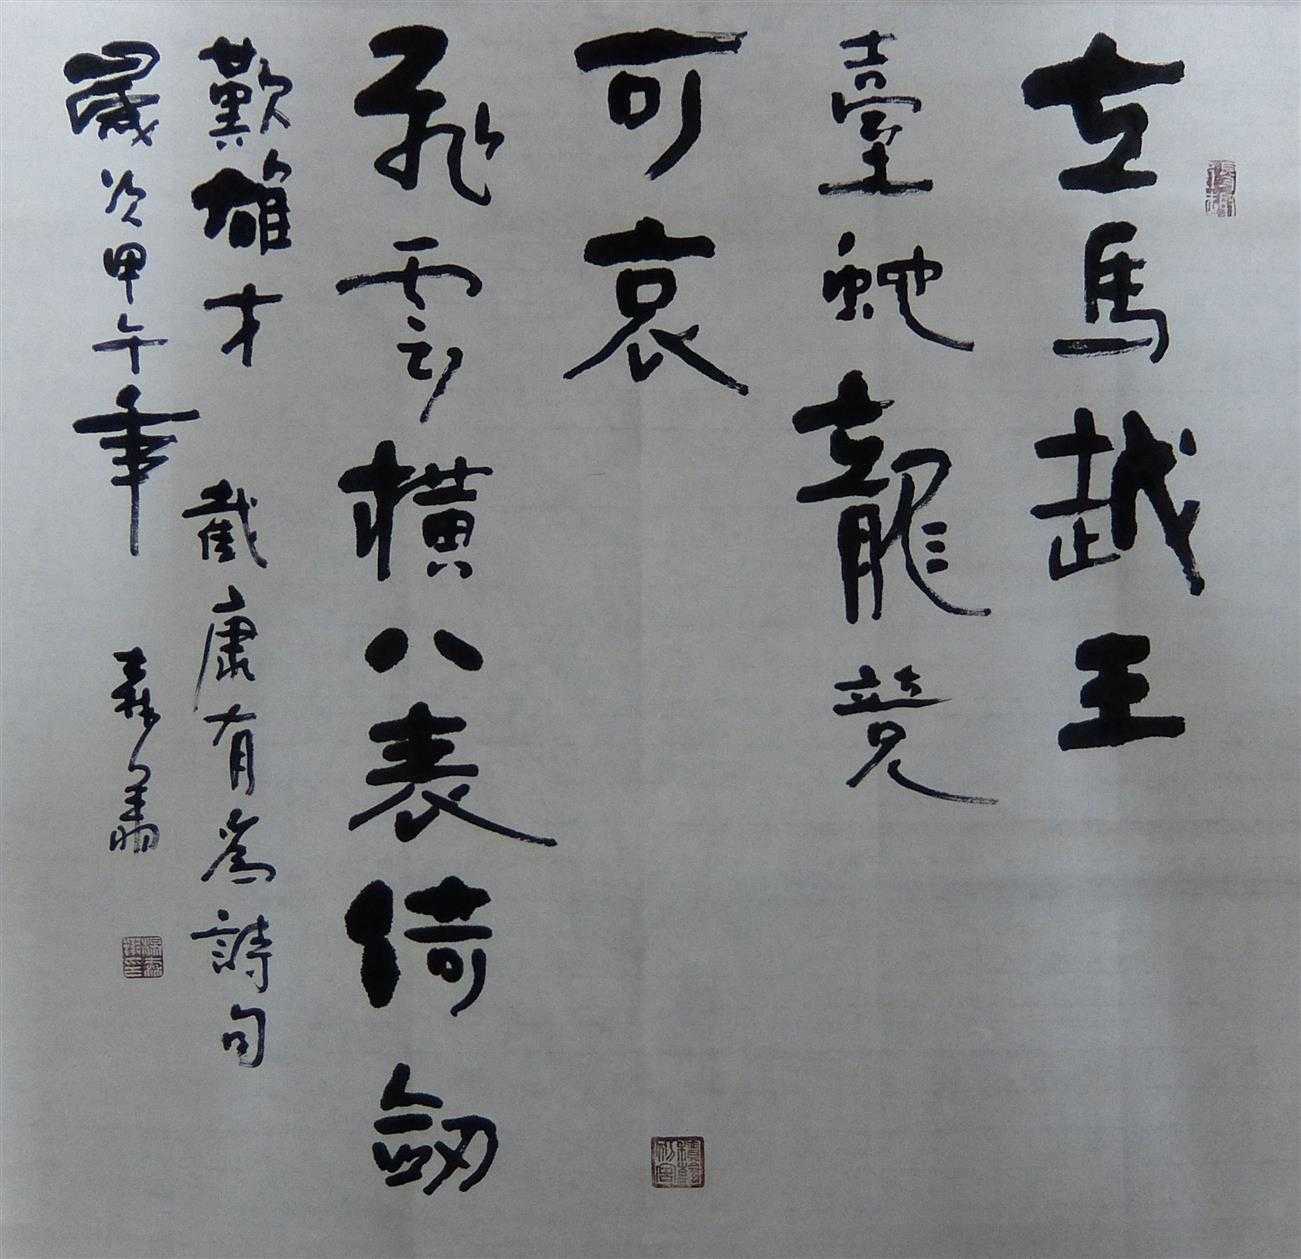 立馬越王
臺蛇龍競
可哀
飛雲橫八表倚劍
歎雄才 截康有為詩句
歲次甲午年